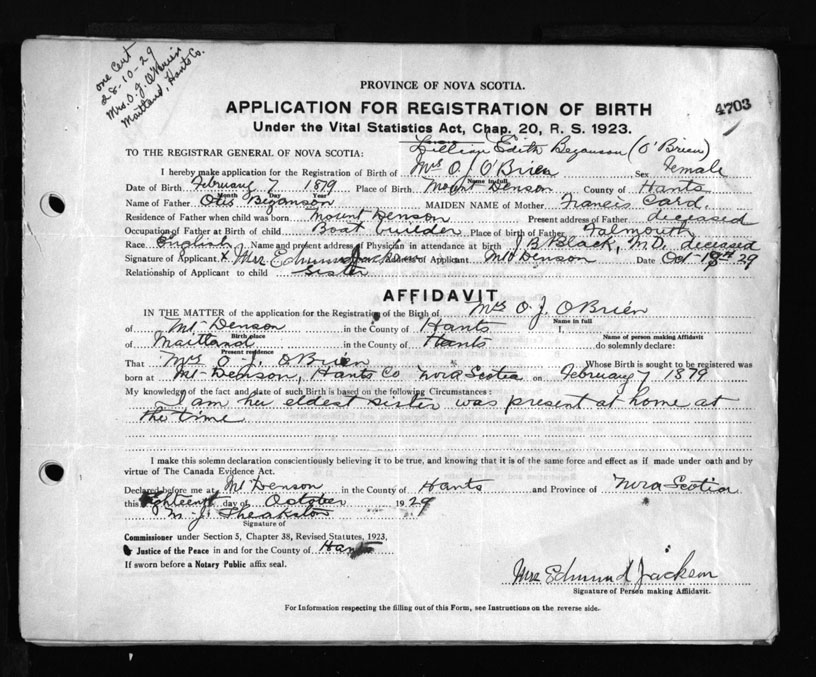 one Cert
28-10-29
Mrs. O. J. O'Brien
Maitland, Hants Co.
PROVINCE OF NOVA SCOTIA.
APPLICATION FOR REGISTRATION OF BIRTH
4703
Under the Vital Statistics Act, Chap. 20, R. S. 1923.
Lillian Edith Bezanson (O'Brien)
TO THE REGISTRAR GENERAL OF NOVA SCOTIA:
I hereby make application for the Registration of Birth of Mrs O. J. O'Brien Sex Female
Name in full
Date of Birth February 7 1879 Place of Birth Mount Denson County of Hants
Month Day Year
Name of Father Otis Bezanson MAIDEN NAME of Mother Francis Card
Residence of Father when child was born Mount Denson Present address of Father deceased
Occupation of Father at Birth of child Boat builder Place of birth of Father Falmouth
Race English Name and present address of Physician in attendance at birth J B Black, M.D. deceased
Signature of Applicant x Mrs Edmund Jackson of Applicant Mt Denson Date Oct 18th 29
Relationship of Applicant to child Sister
AFFIDAVIT
IN THE MATTER of the application for the Registration of the Birth of Mrs O. J. O'Brien
Name in full
of Mt Denson in the County of Hants I,
Birth place Name of person making Affidavit
of Maitland in the County of Hants do solemnly declare:
Present residence
That Mrs O. J. O'Brien Whose Birth is sought to be registered was
born at Mt Denson, Hants Co Nova Scotia on February 7 1879
My knowledge of the fact and date of such Birth is based on the following Circumstances:
I am her eldest sister was present at home at
the time
I make this solemn declaration conscientiously believing it to be true, and knowing that it is of the same force and effect as if made under oath and by
virtue of The Canada Evidence Act.
Declared before me at Mt Denson in the County of Hants and Province of Nova Scotia
this Eighteenth day of October 1929
Signature of
Commissioner under Section 5, Chapter 38, Revised Statutes, 1923,
Justice of the Peace in and for the County of Hants
If sworn before a Notary Public affix seal.
Mrs Edmund Jackson
Signature of Person making Affidavit.
For Information respecting the filling out of this Form, see Instructions on the reverse side.